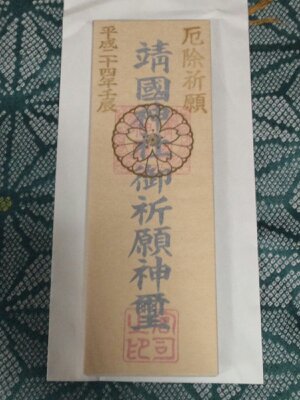 厄除祈願
靖國神社御祈願神璽
平成二十四年壬辰
宮司之印